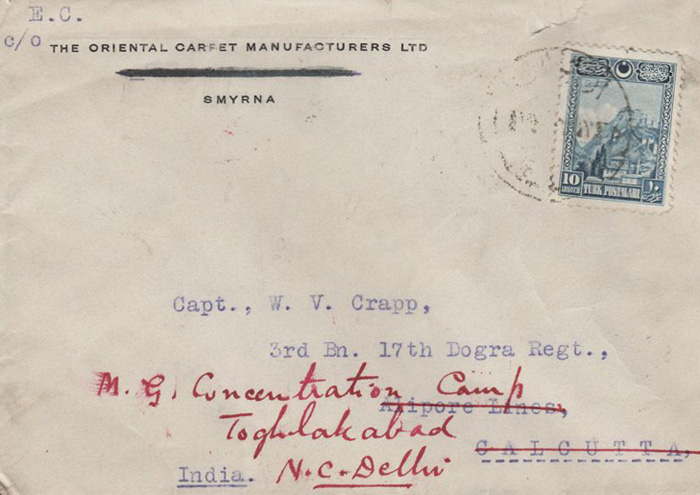 E.C.
c/o THE ORIENTAL CARPET MANUFACTURERS LTD
SMYRNA
10
TURK POSTALARI
١٠
Capt., W. V. Crapp,
3rd Bn. 17th Dogra Regt.,
M. G. Concentration Camp
Alipore Lines,
Toghlakabad
CALCUTTA,
India. N.C. Delhi